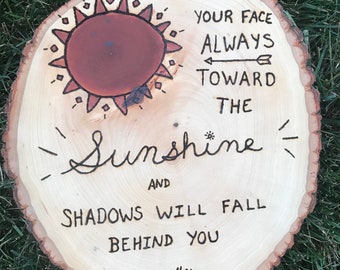 YOUR FACE
ALWAYS
TOWARD
THE
Sunshine
AND
SHADOWS WILL FALL
BEHIND YOU